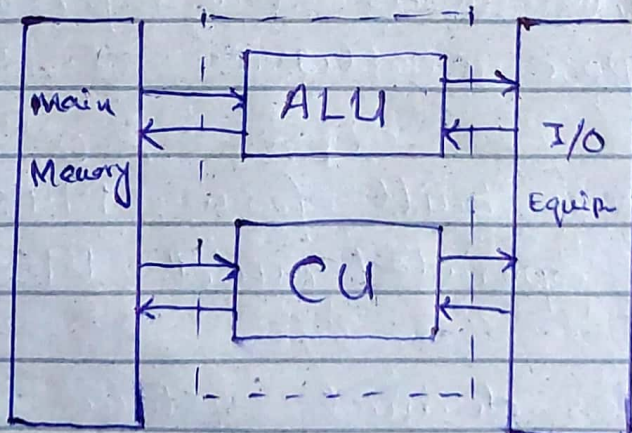 Main
Memory
ALU
I/O
Equip
CU